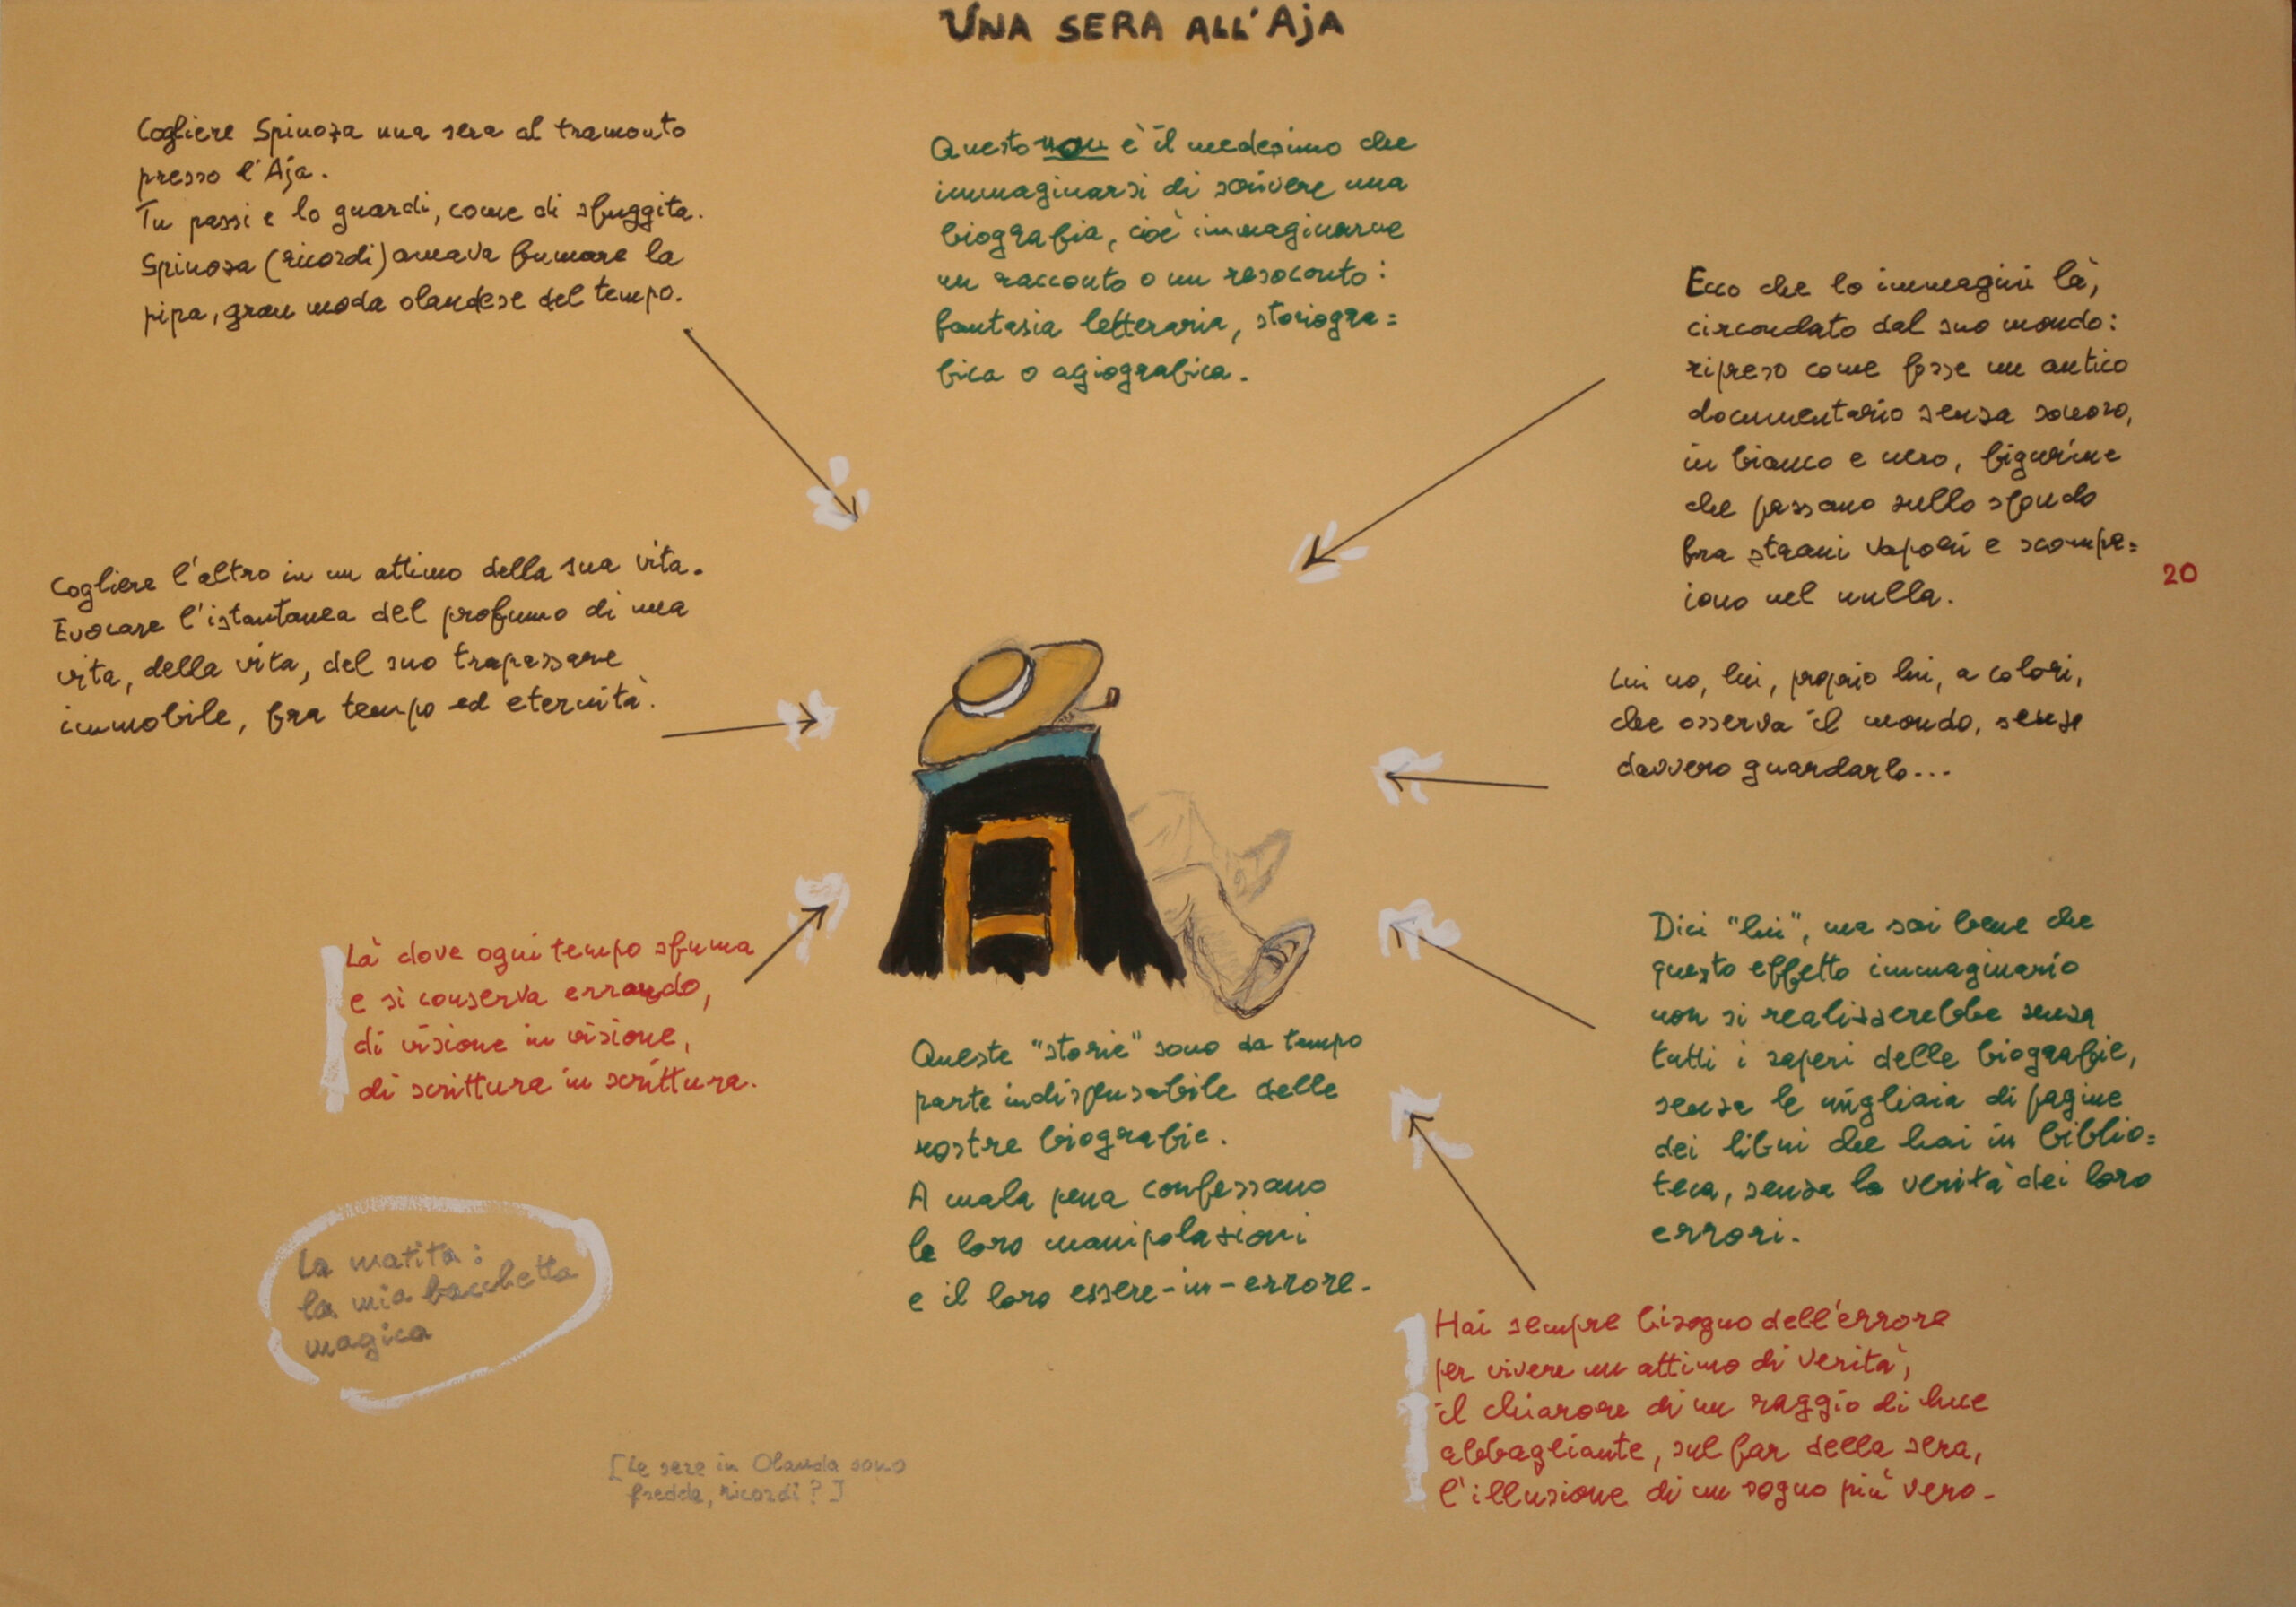 UNA SERA ALL'AJA
Cogliere Spinoza una sera al tramonto
presso l'Aja.
Tu passi e lo guardi, come di sfuggita.
Spinoza (ricordi) amava fumare la
pipa, gran moda olandese del tempo.
Questo non è il medesimo che
immaginarsi di scrivere una
biografia, cioè immaginarne
un racconto o un resoconto:
fantasia letteraria, storiogra=
fica o agiografica.
Ecco che lo immagini là,
circondato dal suo mondo:
ripreso come fosse un antico
documentario senza sonoro,
in bianco e nero, figurine
che passano sullo sfondo
fra strani vapori e scompa=
iono nel nulla.
20
Cogliere l'altro in un attimo della sua vita.
Evocare l'istantanea del profumo di una
vita, della vita, del suo trapassare
immobile, fra tempo ed eternità.
Lui no, lui, proprio lui, a colori,
che osserva il mondo, senza
davvero guardarlo...
Là dove ogni tempo sfuma
e si conserva errando,
di visione in visione,
di scrittura in scrittura.
Dici "lui", ma sai bene che
questo effetto immaginario
non si realizzerebbe senza
tutti i saperi delle biografie,
senza le migliaia di pagine
dei libri che hai in biblio=
teca, senza la verità dei loro
errori.
Queste "storie" sono da tempo
parte indispensabile delle
nostre biografie.
A mala pena confessano
le loro manipolazioni
e il loro essere-in-errore.
La matita:
la mia bacchetta
magica
Hai sempre bisogno dell'errore
per vivere un attimo di verità,
il chiarore di un raggio di luce
abbagliante, sul far della sera,
l'illusione di un sogno più vero.
[Le sere in Olanda sono
fredde, ricordi?]